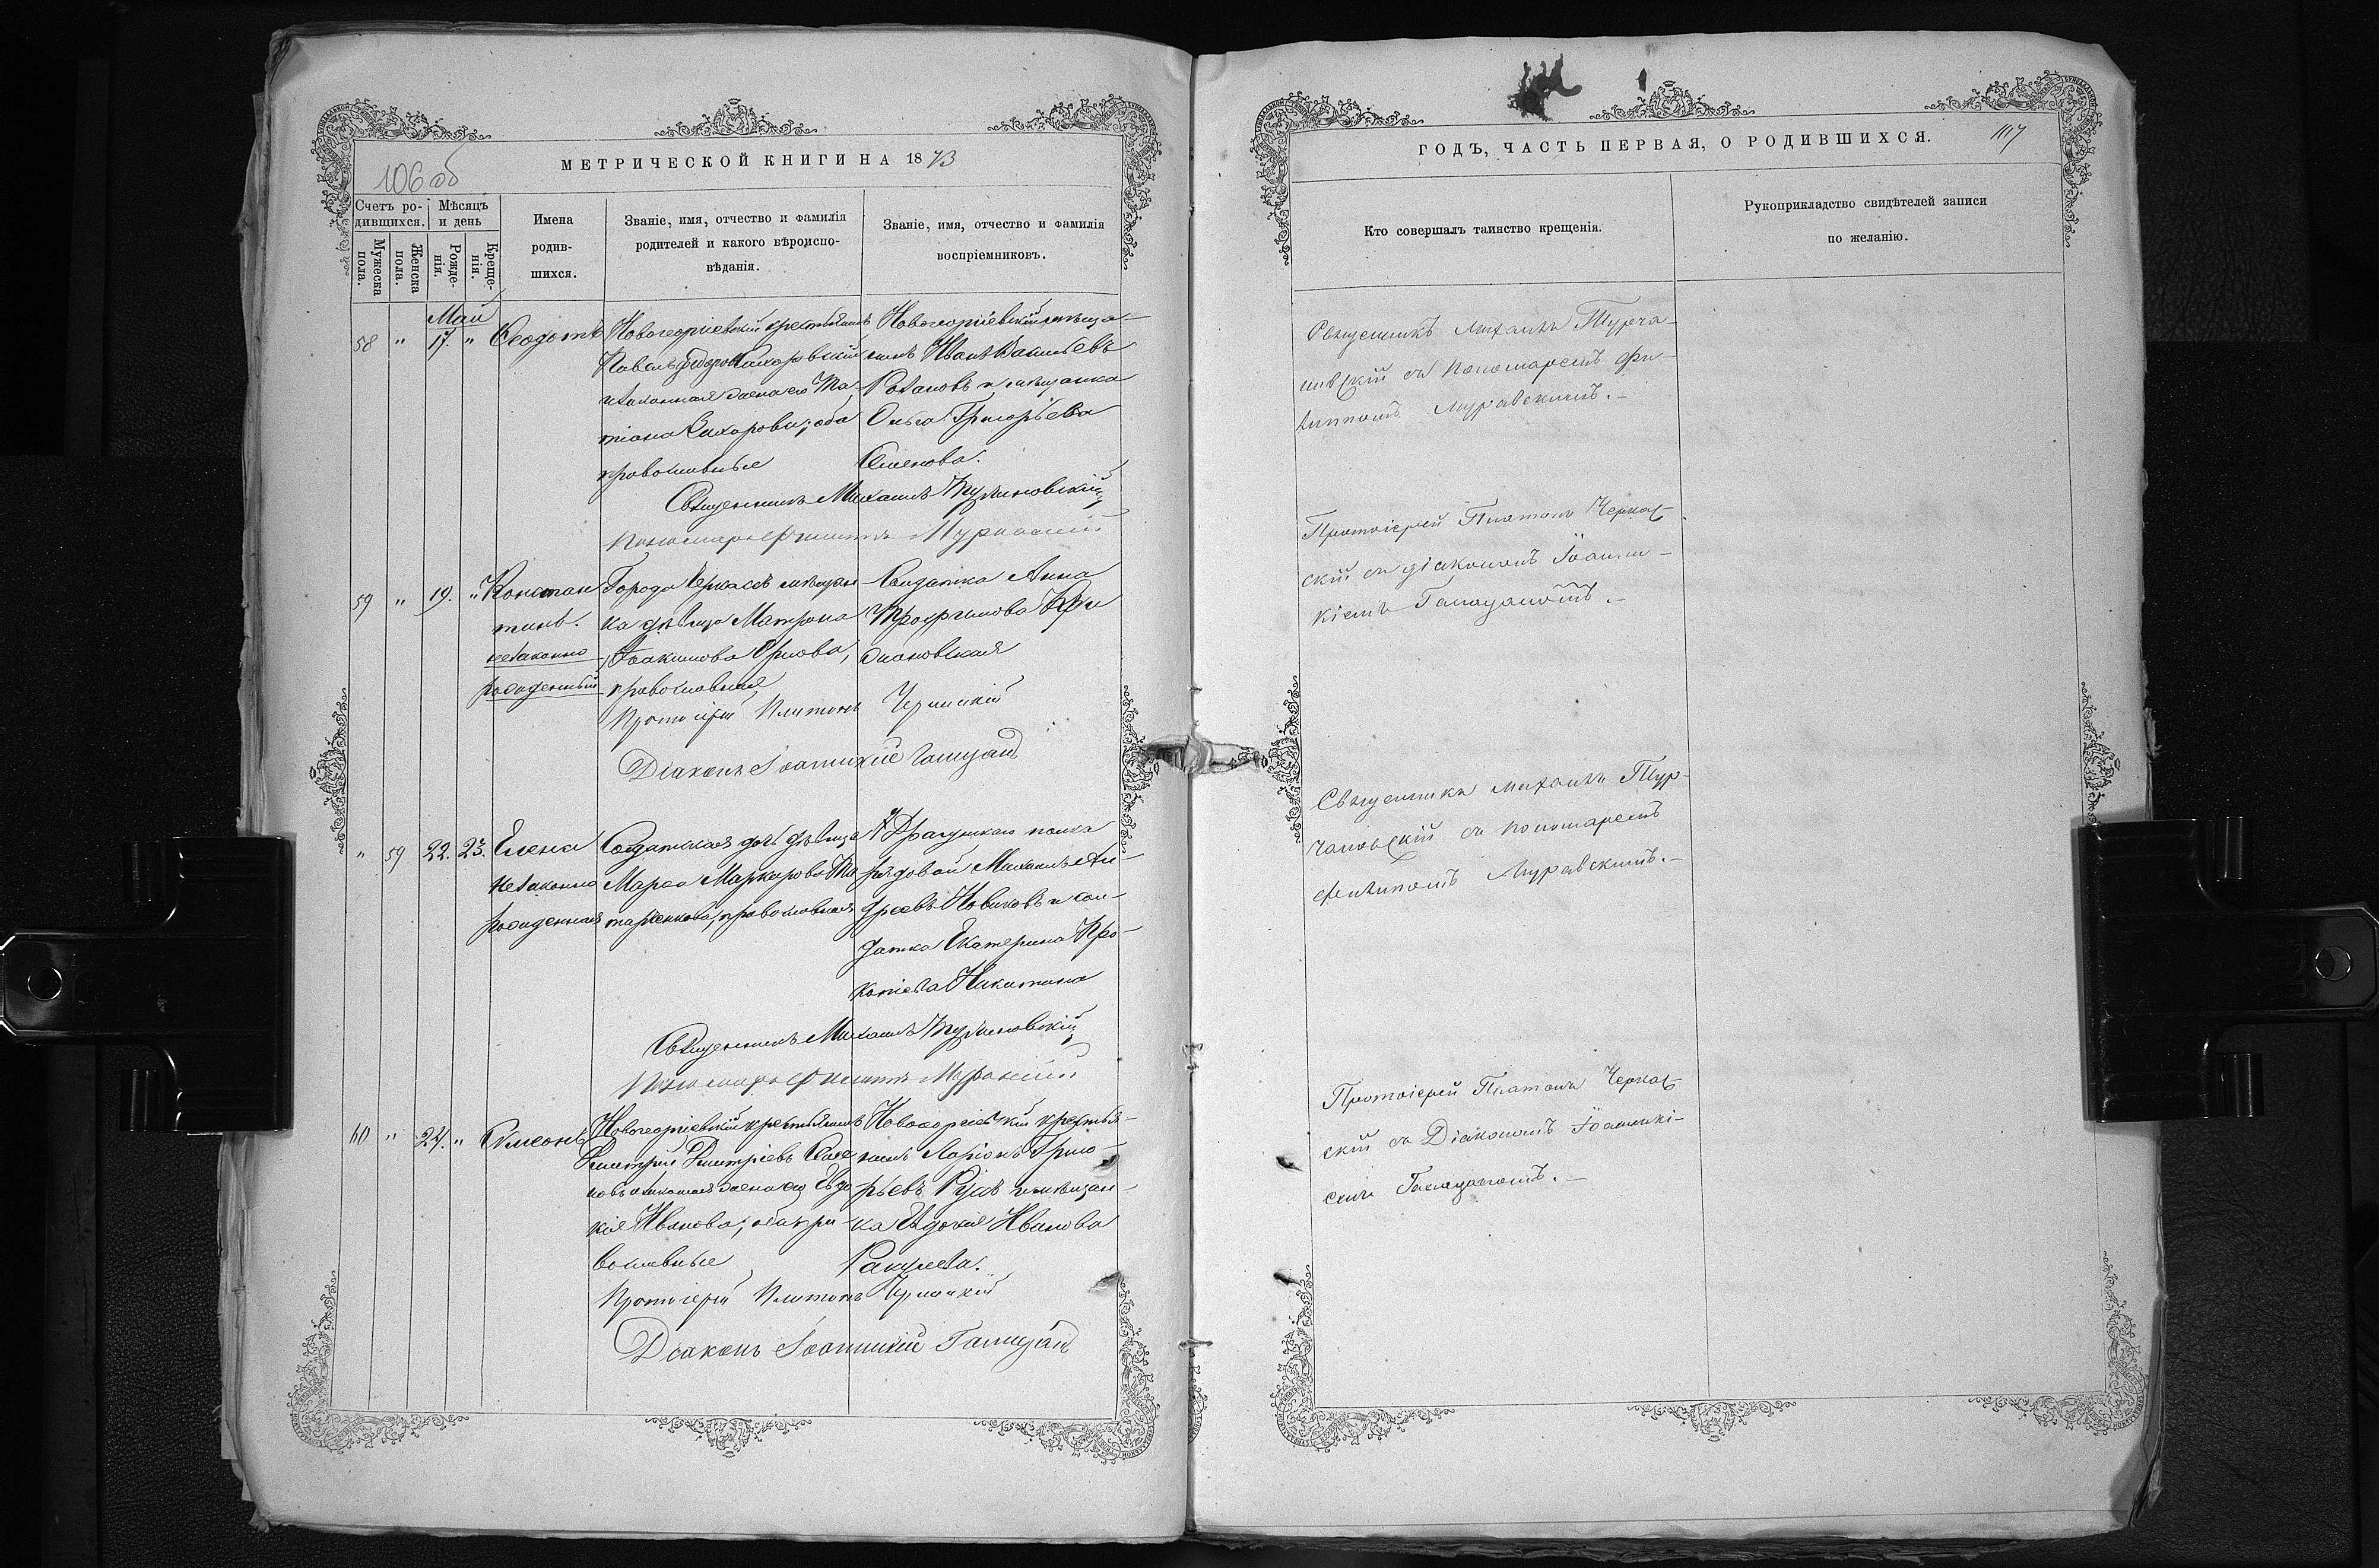 106 об
МЕТРИЧЕСКОЙ КНИГИ НА 1873
Счетъ родившихся.
Мѣсяцъ и день
Мужеска пола.
Женска пола.
Рожденія.
Крещенія.
Имена
родив-
шихся.
Званіе, имя, отчество и фамилія
родителей и какого вѣроиспо-
вѣданія.
Званіе, имя, отчество и фамилія
воспріемниковъ.
Май
58 " 17. " Ѳеодотъ
Новогеоргіевскій крестьянинъ
Павелъ Ѳедоровъ
и законная жена его Та-
тіана Захарова; оба
православные
Новогеоргіевскій мѣща-
нинъ Иванъ Васильевъ
Розановъ и мѣщанка
Ольга Григорьева
Семенова.
Священникъ Михаилъ Турчановскій
Пономарь Филиппъ Муравскій
59 " 19. " Констан
тинъ.
незаконно
рожденный
Города Черкасъ мѣщан
ка дѣвица Матрона
Іоакимова Орлова,
православная
Солдатка Анна
Трофимова Кри
Протоіерей Платонъ Черкаскій
Діаконъ Іоанникій Галицанъ
" 59 22. 23. Елена
незаконно
рожденная
Солдатская дочь дѣвица
Марѳа Маркарова Та
таренкова, православная
Драгунскаго полка
рядовой Михаилъ Ан-
дреевъ Новиковъ и сол-
датка Екатерина Про-
копіева Никитина
Священникъ Михаилъ Турчановскій
Пономарь Филиппъ Муравскій
60 " 24. " Симеонъ
Новогеоргіевскій крестьянинъ
Дмитрій Дмитріевъ Семе
новъ и законная жена его Евдо
кія Иванова; оба пра
вославные
Новогеоргіевскій крестья-
нинъ Ларіонъ Григо-
рьевъ и мѣщан-
ка Евдокія Иванова
Протоіерей Платонъ Черкаскій
Діаконъ Іоанникій Галицанъ
ГОДЪ, ЧАСТЬ ПЕРВАЯ, О РОДИВШИХСЯ.
107
Кто совершалъ таинство крещенія.
Рукоприкладство свидѣтелей записи
по желанію.
Священникъ Михаилъ Турча-
новскій съ пономаремъ Фи-
липпомъ Муравскимъ.-
Протоіерей Платонъ Черкас-
скій съ діакономъ Іоанни-
кіемъ Галицаномъ.-
Священникъ Михаилъ Тур-
чановскій съ пономаремъ
Филипомъ Муравскимъ.-
Протоіерей Платонъ Черкас-
скій съ Діакономъ Іоанникі-
емъ Галицаномъ.-